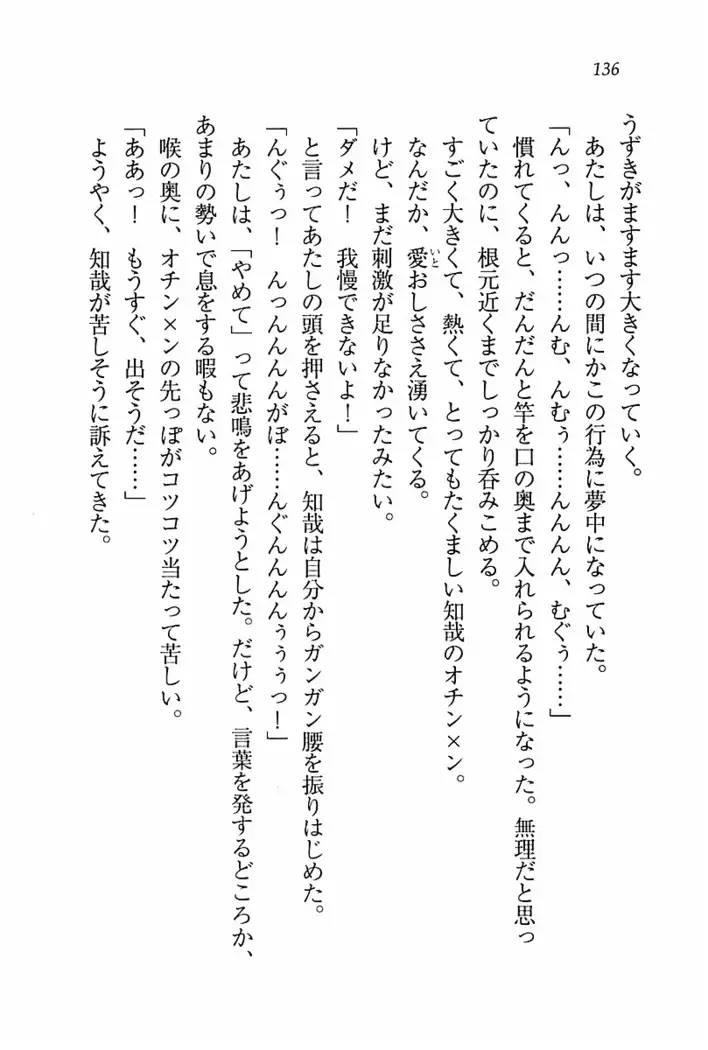 136
うずきがますます大きくなっていく。
あたしは、いつの間にかこの行為に夢中になっていた。
「んっ、んんっ……んむ、んむぅ……んんんん、むぐぅ……」
慣れてくると、だんだんと竿を口の奥まで入れられるようになった。無理だと思っ
ていたのに、根元近くまでしっかり呑みこめる。
すごく大きくて、熱くて、とってもたくましい知哉のオチン×ン。
なんだか、愛おしささえ湧いてくる。
けど、まだ刺激が足りなかったみたい。
「ダメだ！　我慢できないよ！」
と言ってあたしの頭を押さえると、知哉は自分からガンガン腰を振りはじめた。
「んぐぅっ！　んっんんんんがぽ……んぐんんんんぅぅぅっ！」
あたしは、「やめて」って悲鳴をあげようとした。だけど、言葉を発するどころか、
あまりの勢いで息をする暇もない。
喉の奥に、オチン×ンの先っぽがコツコツ当たって苦しい。
「ああっ！　もうすぐ、出そうだ……」
ようやく、知哉が苦しそうに訴えてきた。